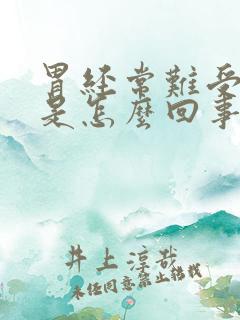 胃経常難受
是怎麼回事
井上淳哉
未经同意禁止转载